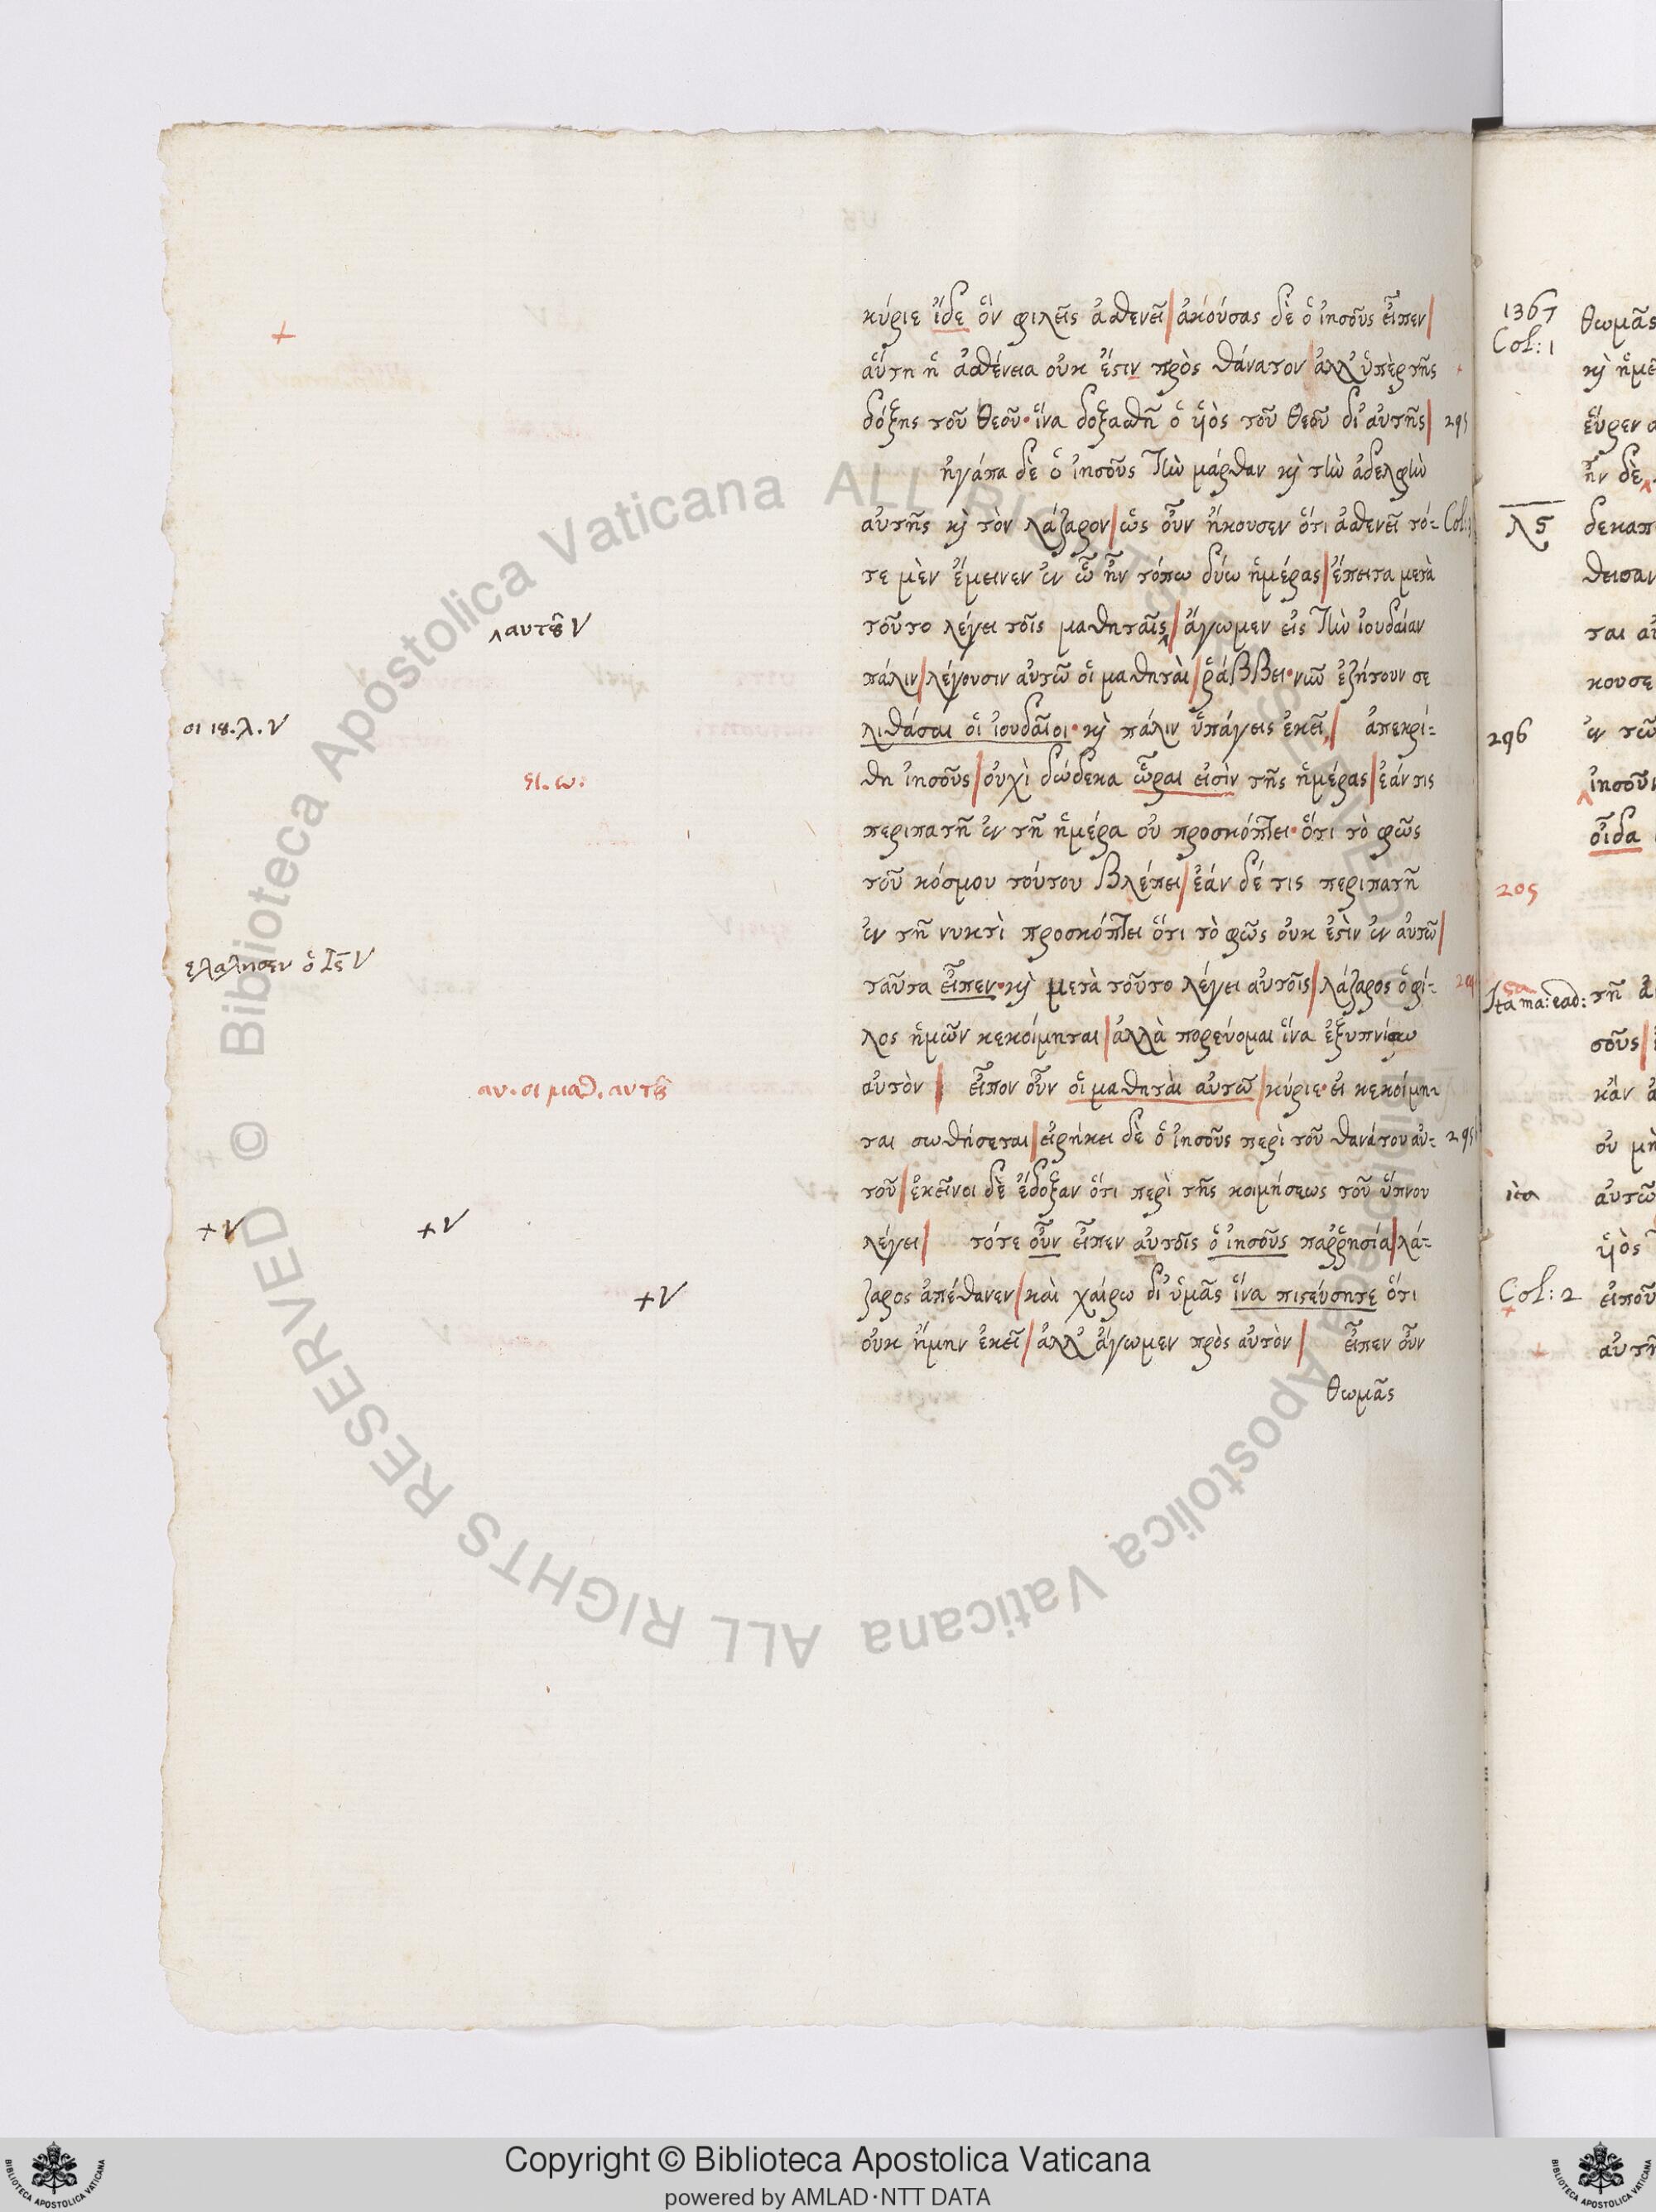 κύριε ἴδε ὃν φιλεῖς ἀσθενεῖ/ἀκούσας δὲ ὁ ἰησοῦς εἶπεν/
+
αὕτη ἡ ἀσθένεια οὐκ ἔστιν πρὸς θάνατον/ἀλλ᾽ ὑπὲρ τῆς +
δόξης τοῦ θεοῦ·ἵνα δοξασθῇ ὁ υἱὸς τοῦ θεοῦ δι᾽ αὐτῆς/ 295
ἠγάπα δὲ ὁ ἰησοῦς τὴν μάρθαν κὶ τὴν ἀδελφὴν
αὐτῆς κὶ τὸν λάζαρον/ὡς οὖν ἤκουσεν ὅτι ἀσθενεῖ τό- Col:
τε μὲν ἔμεινεν ἐν ὧ ἦν τόπω δύω ἡμέρας/ἔπειτα μετὰ
‸αυτȣ V
τοῦτο λέγει τοῖς μαθηταῖς‸/ἄγωμεν εἰς τὴν ἰουδαίαν
πάλιν/λέγουσιν αὐτῶ οἱ μαθηταὶ/ῥάββει·νῦν ἐζήτουν σε
οι ιȣ.λ.V
λιθάσαι οἱ ἰουδαῖοι·κὶ πάλιν ὑπάγεις ἐκεῖ,/ ἀπεκρί-
ει.ω.
θη ἰησοῦς/οὐχὶ δώδεκα ὧραι εἰσὶν τῆς ἡμέρας/ἐάν τις
περιπατῆ ἐν τῆ ἡμέρα οὐ προσκόπτει·ὅτι τὸ φῶς
τοῦ κόσμου τούτου βλέπει/ἐάν δέ τις περιπατῆ
ἐν τῆ νυκτὶ προσκόπτει ὅτι τὸ φῶς οὐκ ἔστιν ἐν αὐτῶ/
ελαλησεν ὁ Ις V
ταῦτα εἶπεν·κὶ μετὰ τοῦτο λέγει αὐτοῖς/λάζαρος ὁ φί-
λος ἡμῶν κεκοίμηται/ἀλλὰ πορεύομαι ἵνα ἐξυπνίσω
αυ.οι μαθ.αυτȣ
αὐτὸν/ εἶπον οὖν οἱ μαθηταὶ αὐτῶ/κύριε·εἰ κεκοίμη-
ται σωθήσεται/εἰρήκει δὲ ὁ ἰησοῦς περὶ τοῦ θανάτου αὐ- 295
τοῦ/ἐκεῖνοι δὲ ἔδοξαν ὅτι περὶ τῆς κοιμήσεως τοῦ ὕπνου
+V +V
λέγει/ τότε οὖν εἶπεν αὐτοῖς ὁ ἰησοῦς παῤῥησία/λά-
+V
ζαρος ἀπέθανεν/καὶ χαίρω δι᾽ ὑμᾶς ἵνα πιστεύσητε ὅτι
οὐκ ἤμην ἐκεῖ/ἀλλ᾽ ἄγωμεν πρὸς αὐτὸν/ εἶπεν οὖν
θωμᾶς
1367 θωμᾶς
Col:1
κὶ
εὗρεν
ἦν δὲ‸
λς δεκαπ
θεισαν
ται
κουσε
296 ἐν τῶ
‸ἰησοῦς
οἶδα
205
Ita ma: ead: τῆ
σοῦς/
κἂν
οὐ μὴ
ita αὐτῶ
υἱὸς
Col:2 εἰποῦ
+
Copyright © Biblioteca Apostolica Vaticana
powered by AMLAD·NTT DATA
© Biblioteca Apostolica Vaticana ALL RIGHTS RESERVED © Biblioteca Apostolica Vaticana ALL RIGHTS RESERVED
BIBLIOTECA APOSTOLICA VATICANA
BIBLIOTECA APOSTOLICA VATICANA